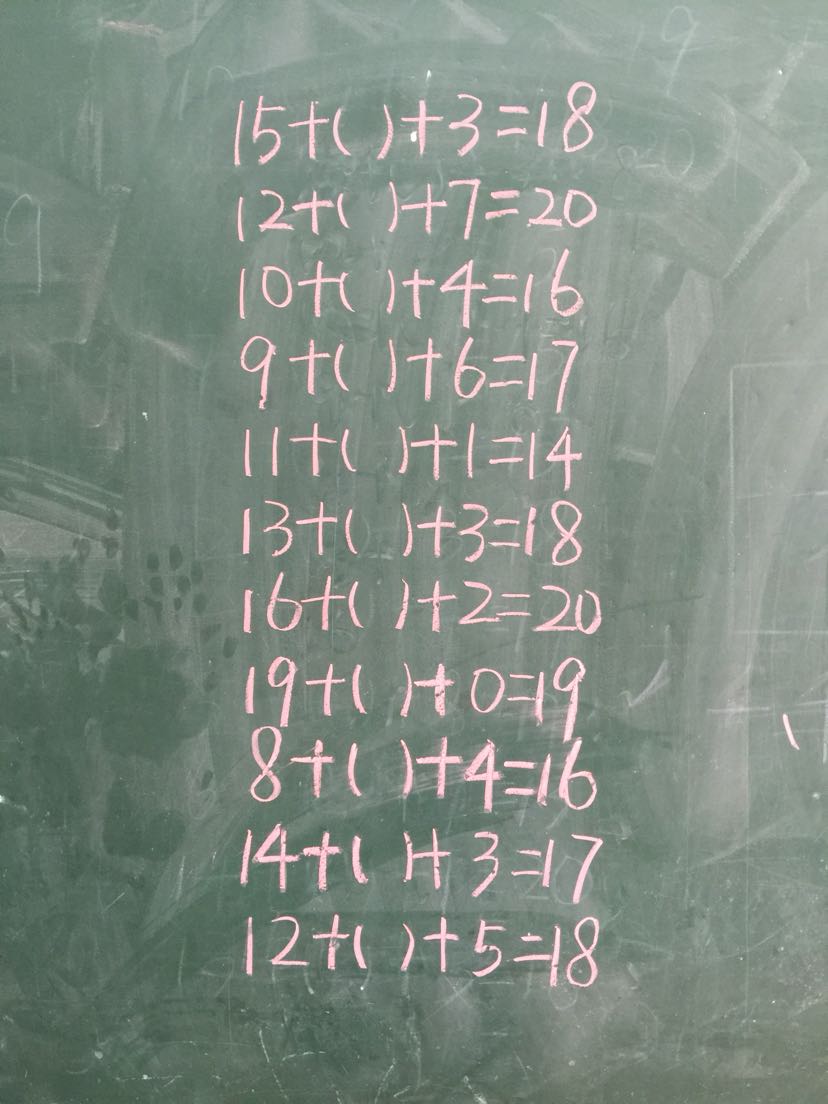 15+( )+3=18
12+( )+7=20
10+( )+4=16
9+( )+6=17
11+( )+1=14
13+( )+3=18
16+( )+2=20
19+( )+0=19
8+( )+4=16
14+( )+3=17
12+( )+5=18